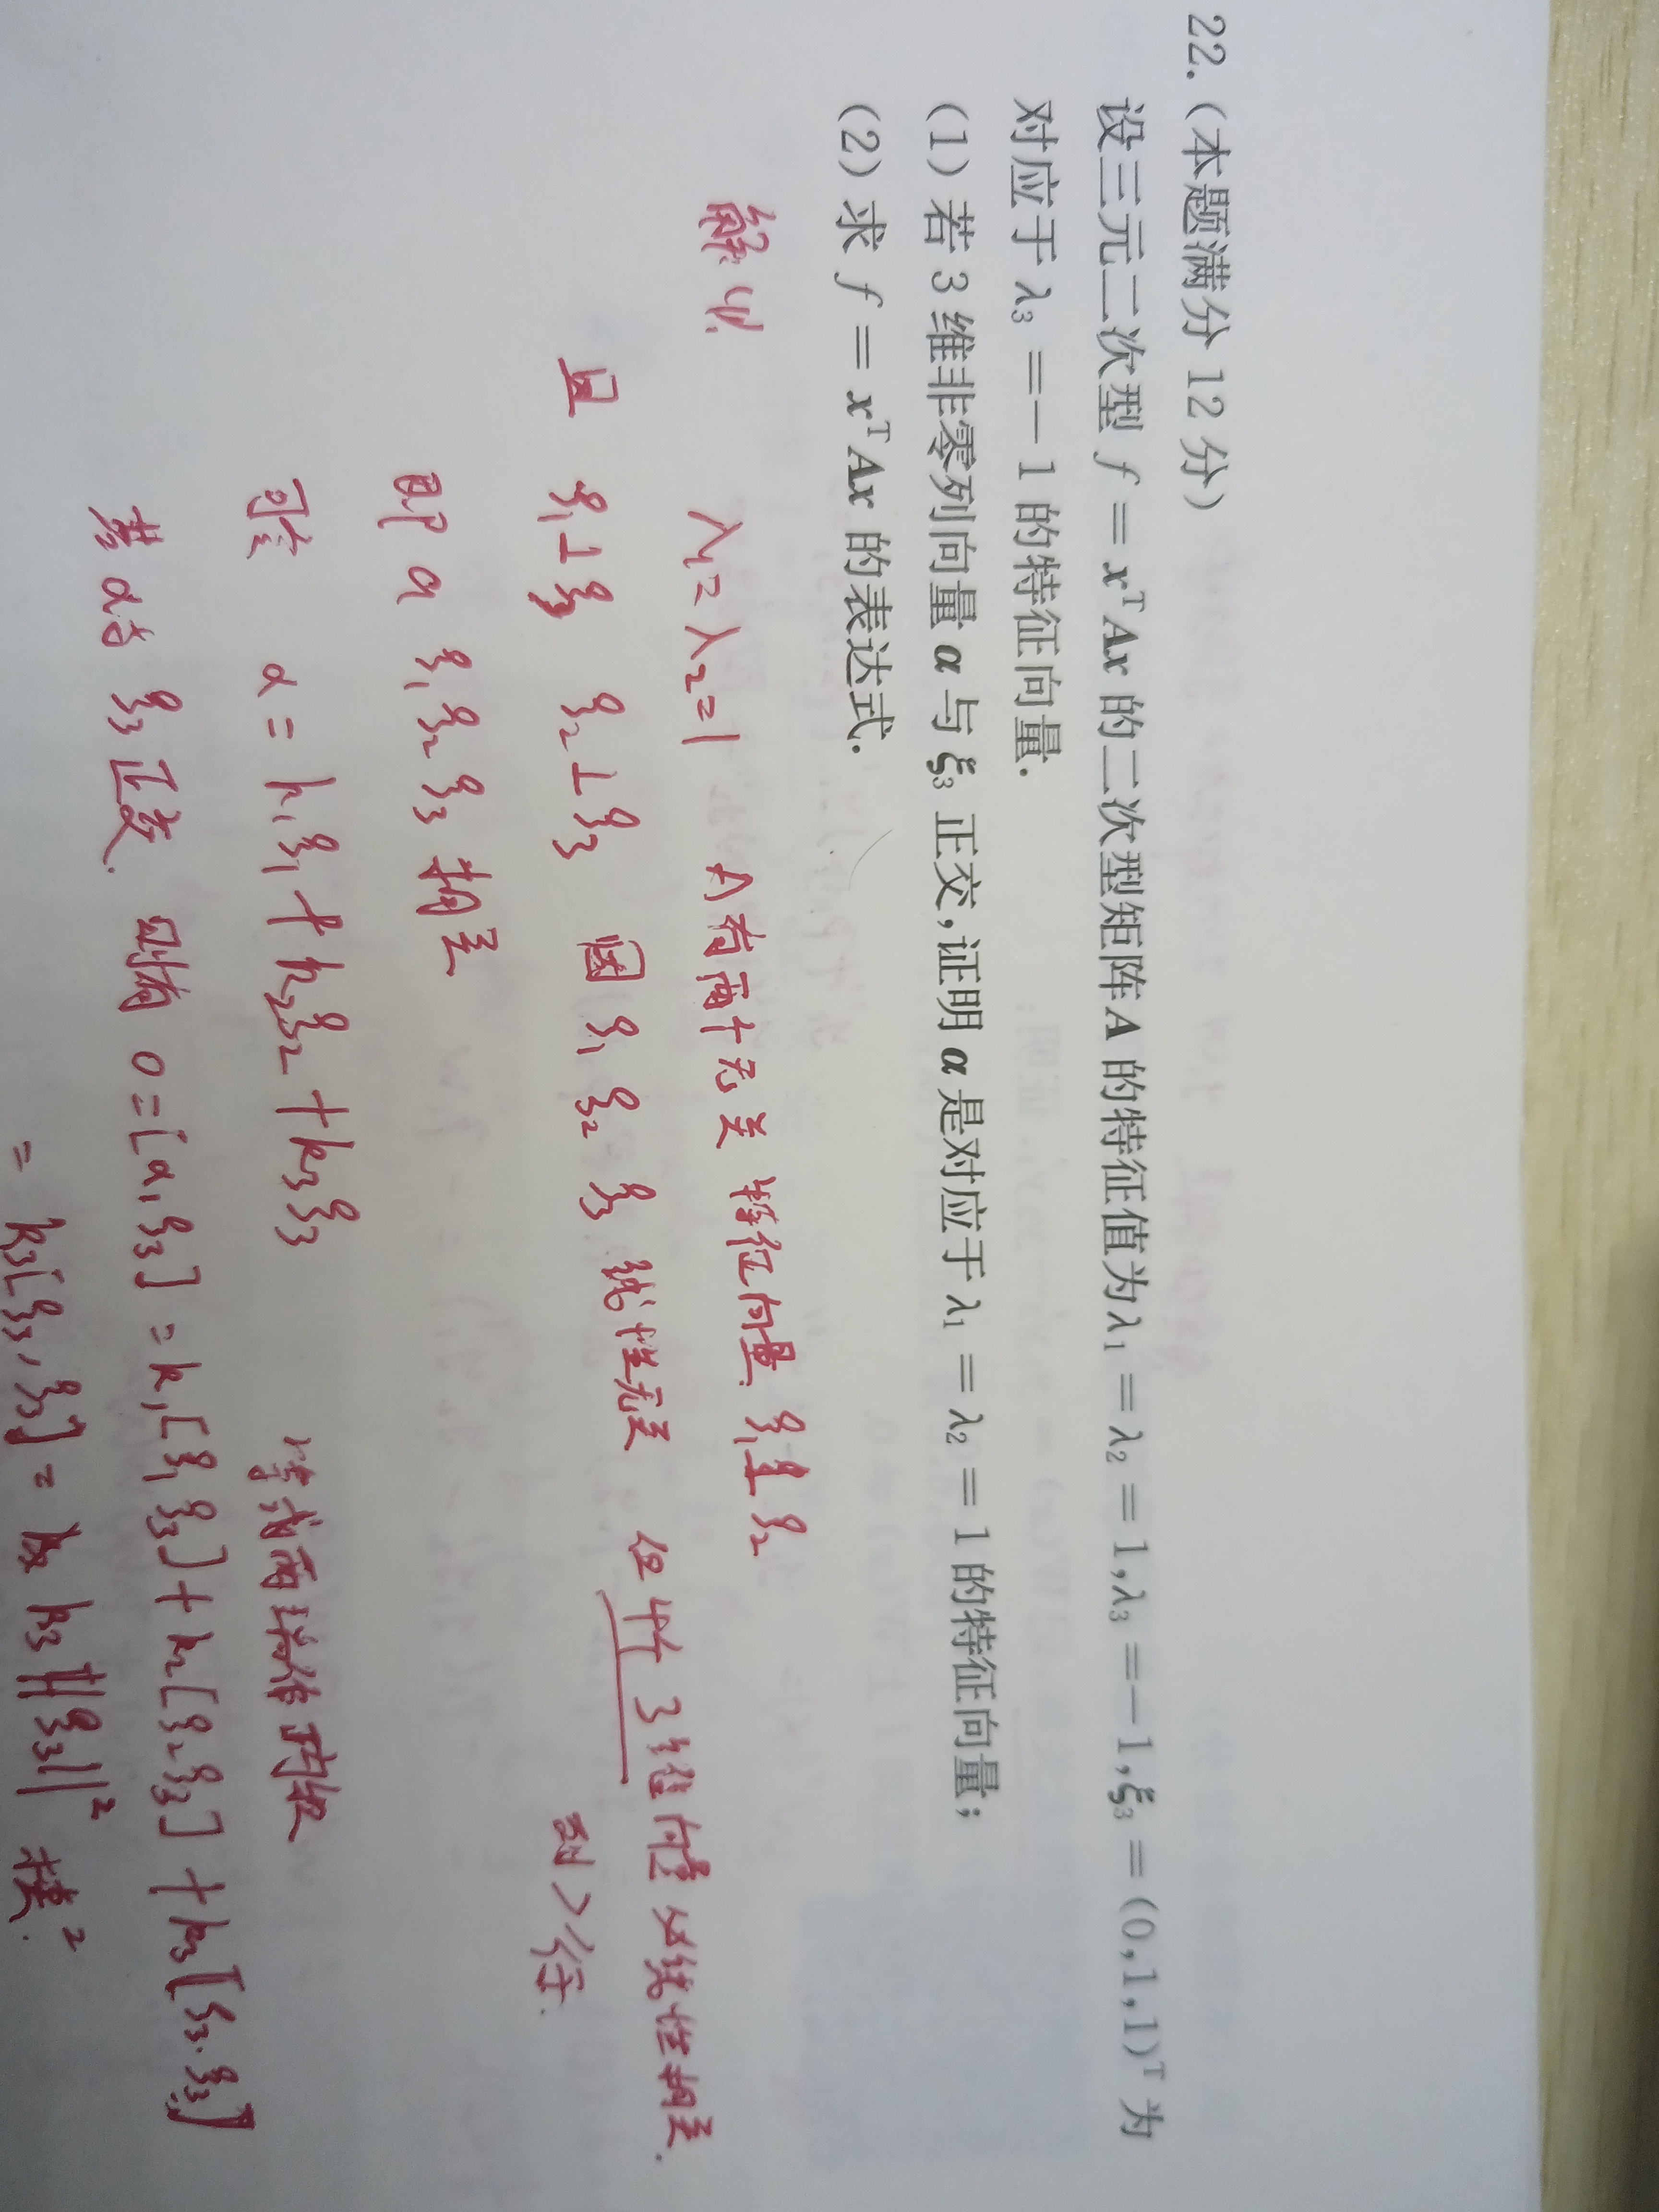 22.(本题满分 12 分)
设三元二次型 f = xᵀAx 的二次型矩阵 A 的特征值为 λ₁ = λ₂ = 1, λ₃ = −1, ξ₃ = (0,1,1)ᵀ 为
对应于 λ₃ = −1 的特征向量.
(1) 若 3 维非零列向量 α 与 ξ₃ 正交,证明 α 是对应于 λ₁ = λ₂ = 1 的特征向量;
(2) 求 f = xᵀAx 的表达式.
解 (1). λ₁ = λ₂ = 1 A有两个无关 特征向量 ξ₁ ξ₂
且 ξ₁⊥ξ₃ ξ₂⊥ξ₃ 因 ξ₁ ξ₂ ξ₃ 线性无关 但4个 3维向量必线性相关.
列>行.
即 α ξ₁ ξ₂ ξ₃ 相关
可令 α = k₁ξ₁ + k₂ξ₂ + k₃ξ₃ 等式两端作内积
若α与 ξ₃ 正交. 则有 0 = [α, ξ₃] = k₁[ξ₁ ξ₃] + k₂[ξ₂ ξ₃] + k₃[ξ₃·ξ₃]
= k₃[ξ₃, ξ₃] = k₃‖ξ₃‖² 模².